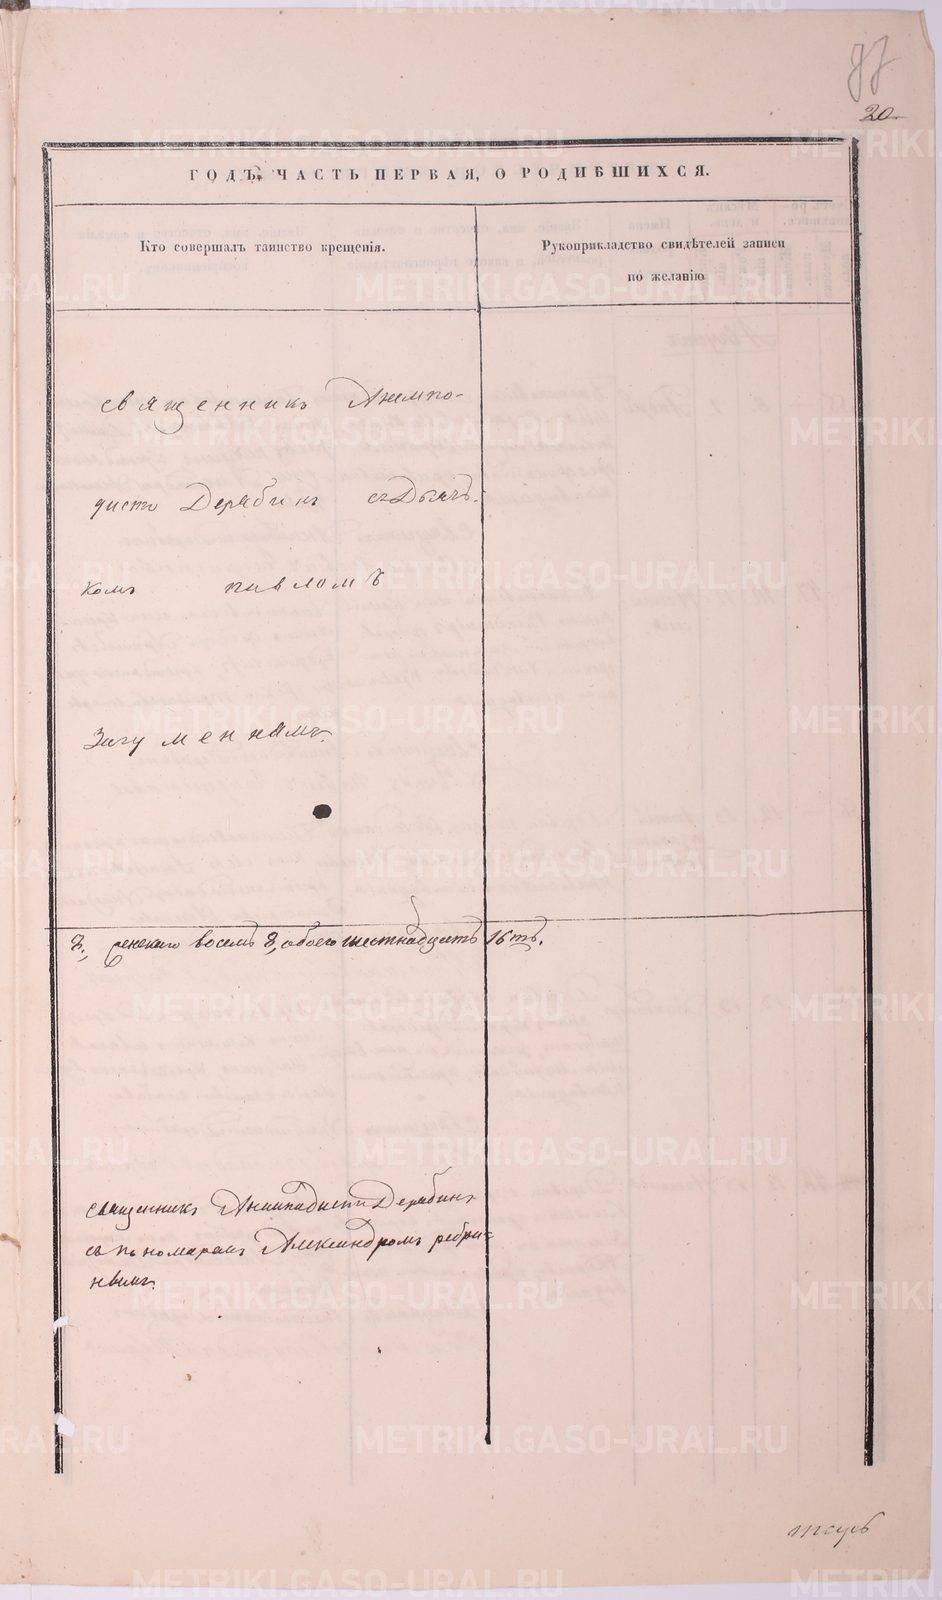 87
20
ГОДЪ, ЧАСТЬ ПЕРВАЯ, О РОДИВШИХСЯ.
Кто совершалъ таинство крещенія.
Рукоприкладство свидѣтелей записи
по желанію
священникъ Анемпо-
дистъ Дерябинъ съ Дьяч-
комъ павломъ
Загуменнымъ.
8, женскаго восемь 8, обоего шестнадцать 16ть.
священникъ Анемпадистъ Дерябинъ
съ пономаремъ Александромъ
METRIKI.GASO-URAL.RU